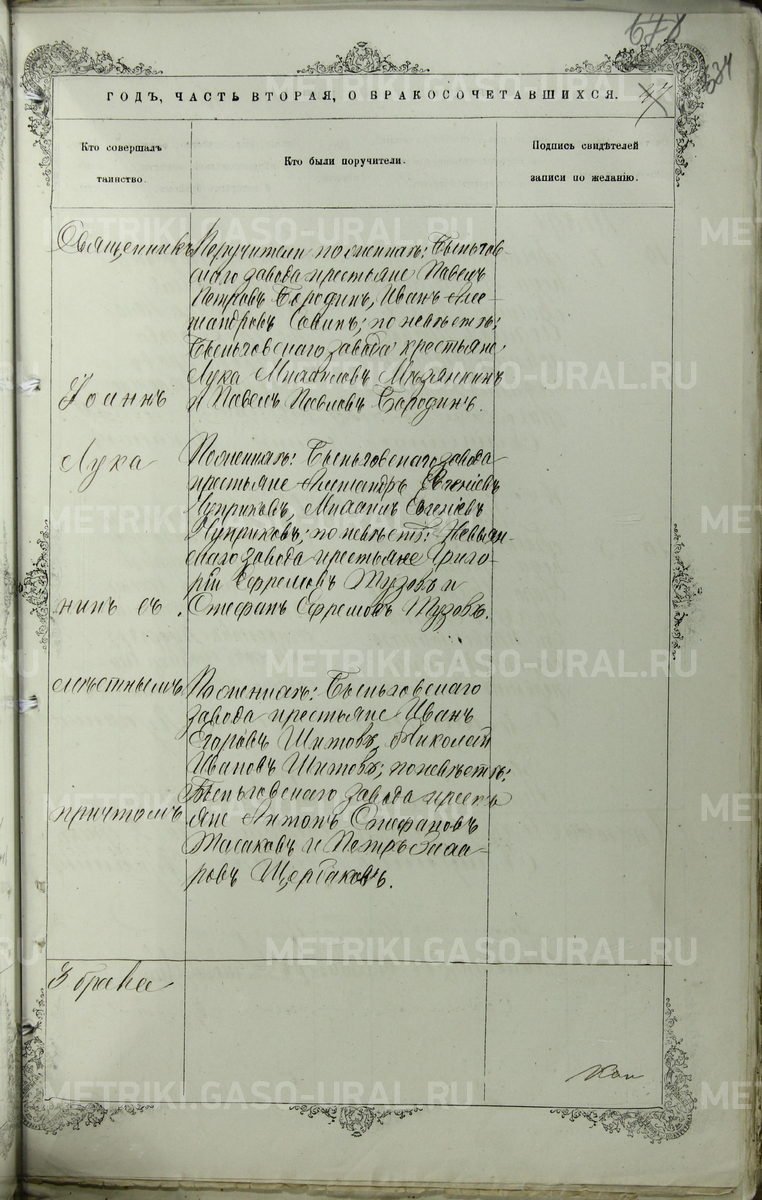 678
684
47
ГОДЪ, ЧАСТЬ ВТОРАЯ, О БРАКОСОЧЕТАВШИХСЯ.
Кто совершалъ
таинство.
Кто были поручители.
Подпись свидѣтелей
записи по желанію.
Священникъ
Іоаннъ
Лука
нинъ съ
мѣстнымъ
причтомъ
Поручители по женихѣ: Быньгов-
скаго завода крестьяне Павелъ
Петровъ Бородинъ, Иванъ Але-
ксандровъ Савинъ; по невѣстѣ:
Быньговскаго завода крестьяне
Лука Михаиловъ Мезянкинъ
и Павелъ Павловъ Бородинъ.
По женихѣ: Быньговскаго завода
крестьяне Александръ Евгеніевъ
Чуприковъ, Михаилъ Евгеніевъ
Чуприковъ; по невѣст: Невьян-
скаго завода крестьяне Григо-
рій Ефремовъ Тузовъ и
Стефанъ Ефремовъ Тузовъ.
По женихѣ: Быньговскаго
завода крестьяне Иванъ
Егоровъ Шитовъ, Николай
Ивановъ Шитовъ; по невѣстѣ:
Быньговскаго завода кресть
яне Антонъ Стефановъ
и Петръ Заха-
ровъ Щербаковъ.
3 брака
METRIKI.GASO-URAL.RU